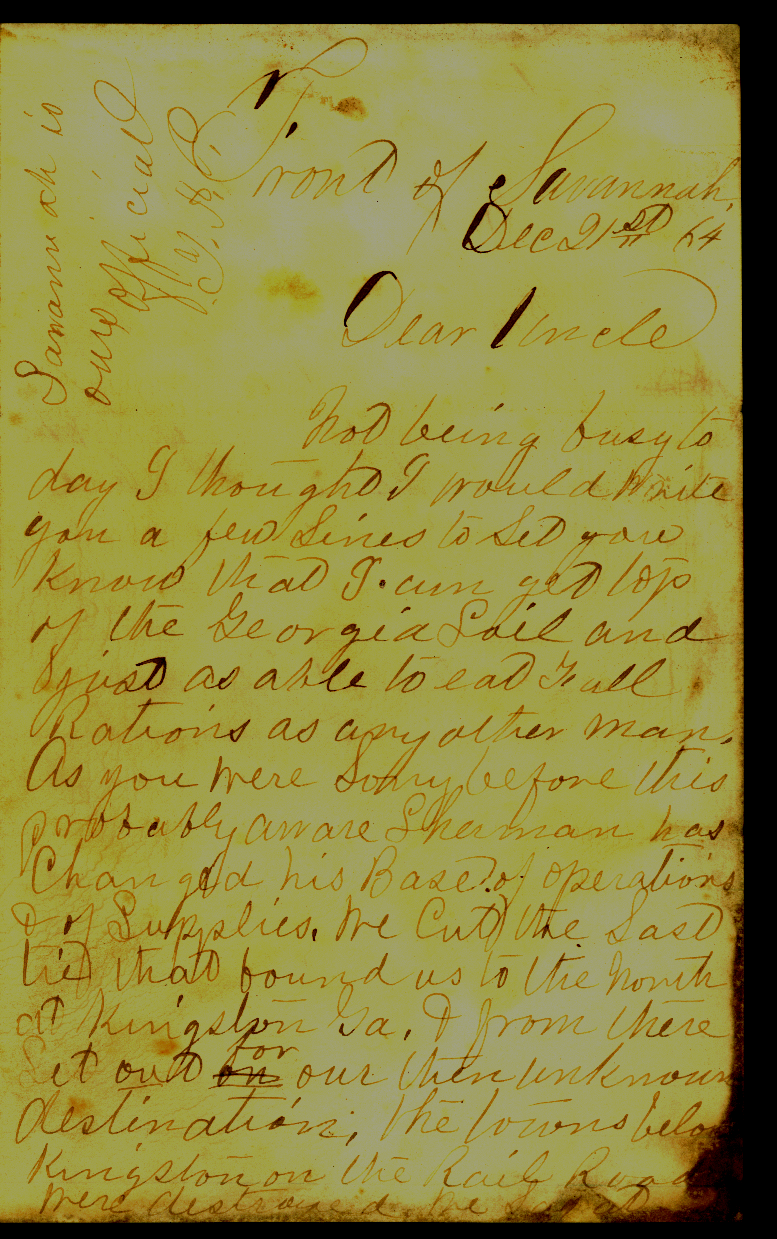 Savannah is
ours official
J. A. H.
Front of Savannah,
Dec 21st 64
Dear Uncle
Not being busy to
day I thought I would write
you a few Lines to Let you
know that I am yet top
of the Georgia Soil and
just as able to eat Full
Rations as any other man.
As you were before this
probably aware Sherman has
Changed his Base of operations
& of Supplies. We Cut the Last
tie that bound us to the North
at Kingston Ga, & from there
Set out on for our then unknown
destination, The towns below
Kingston on the Rail Road
were destroyed. We Lay at